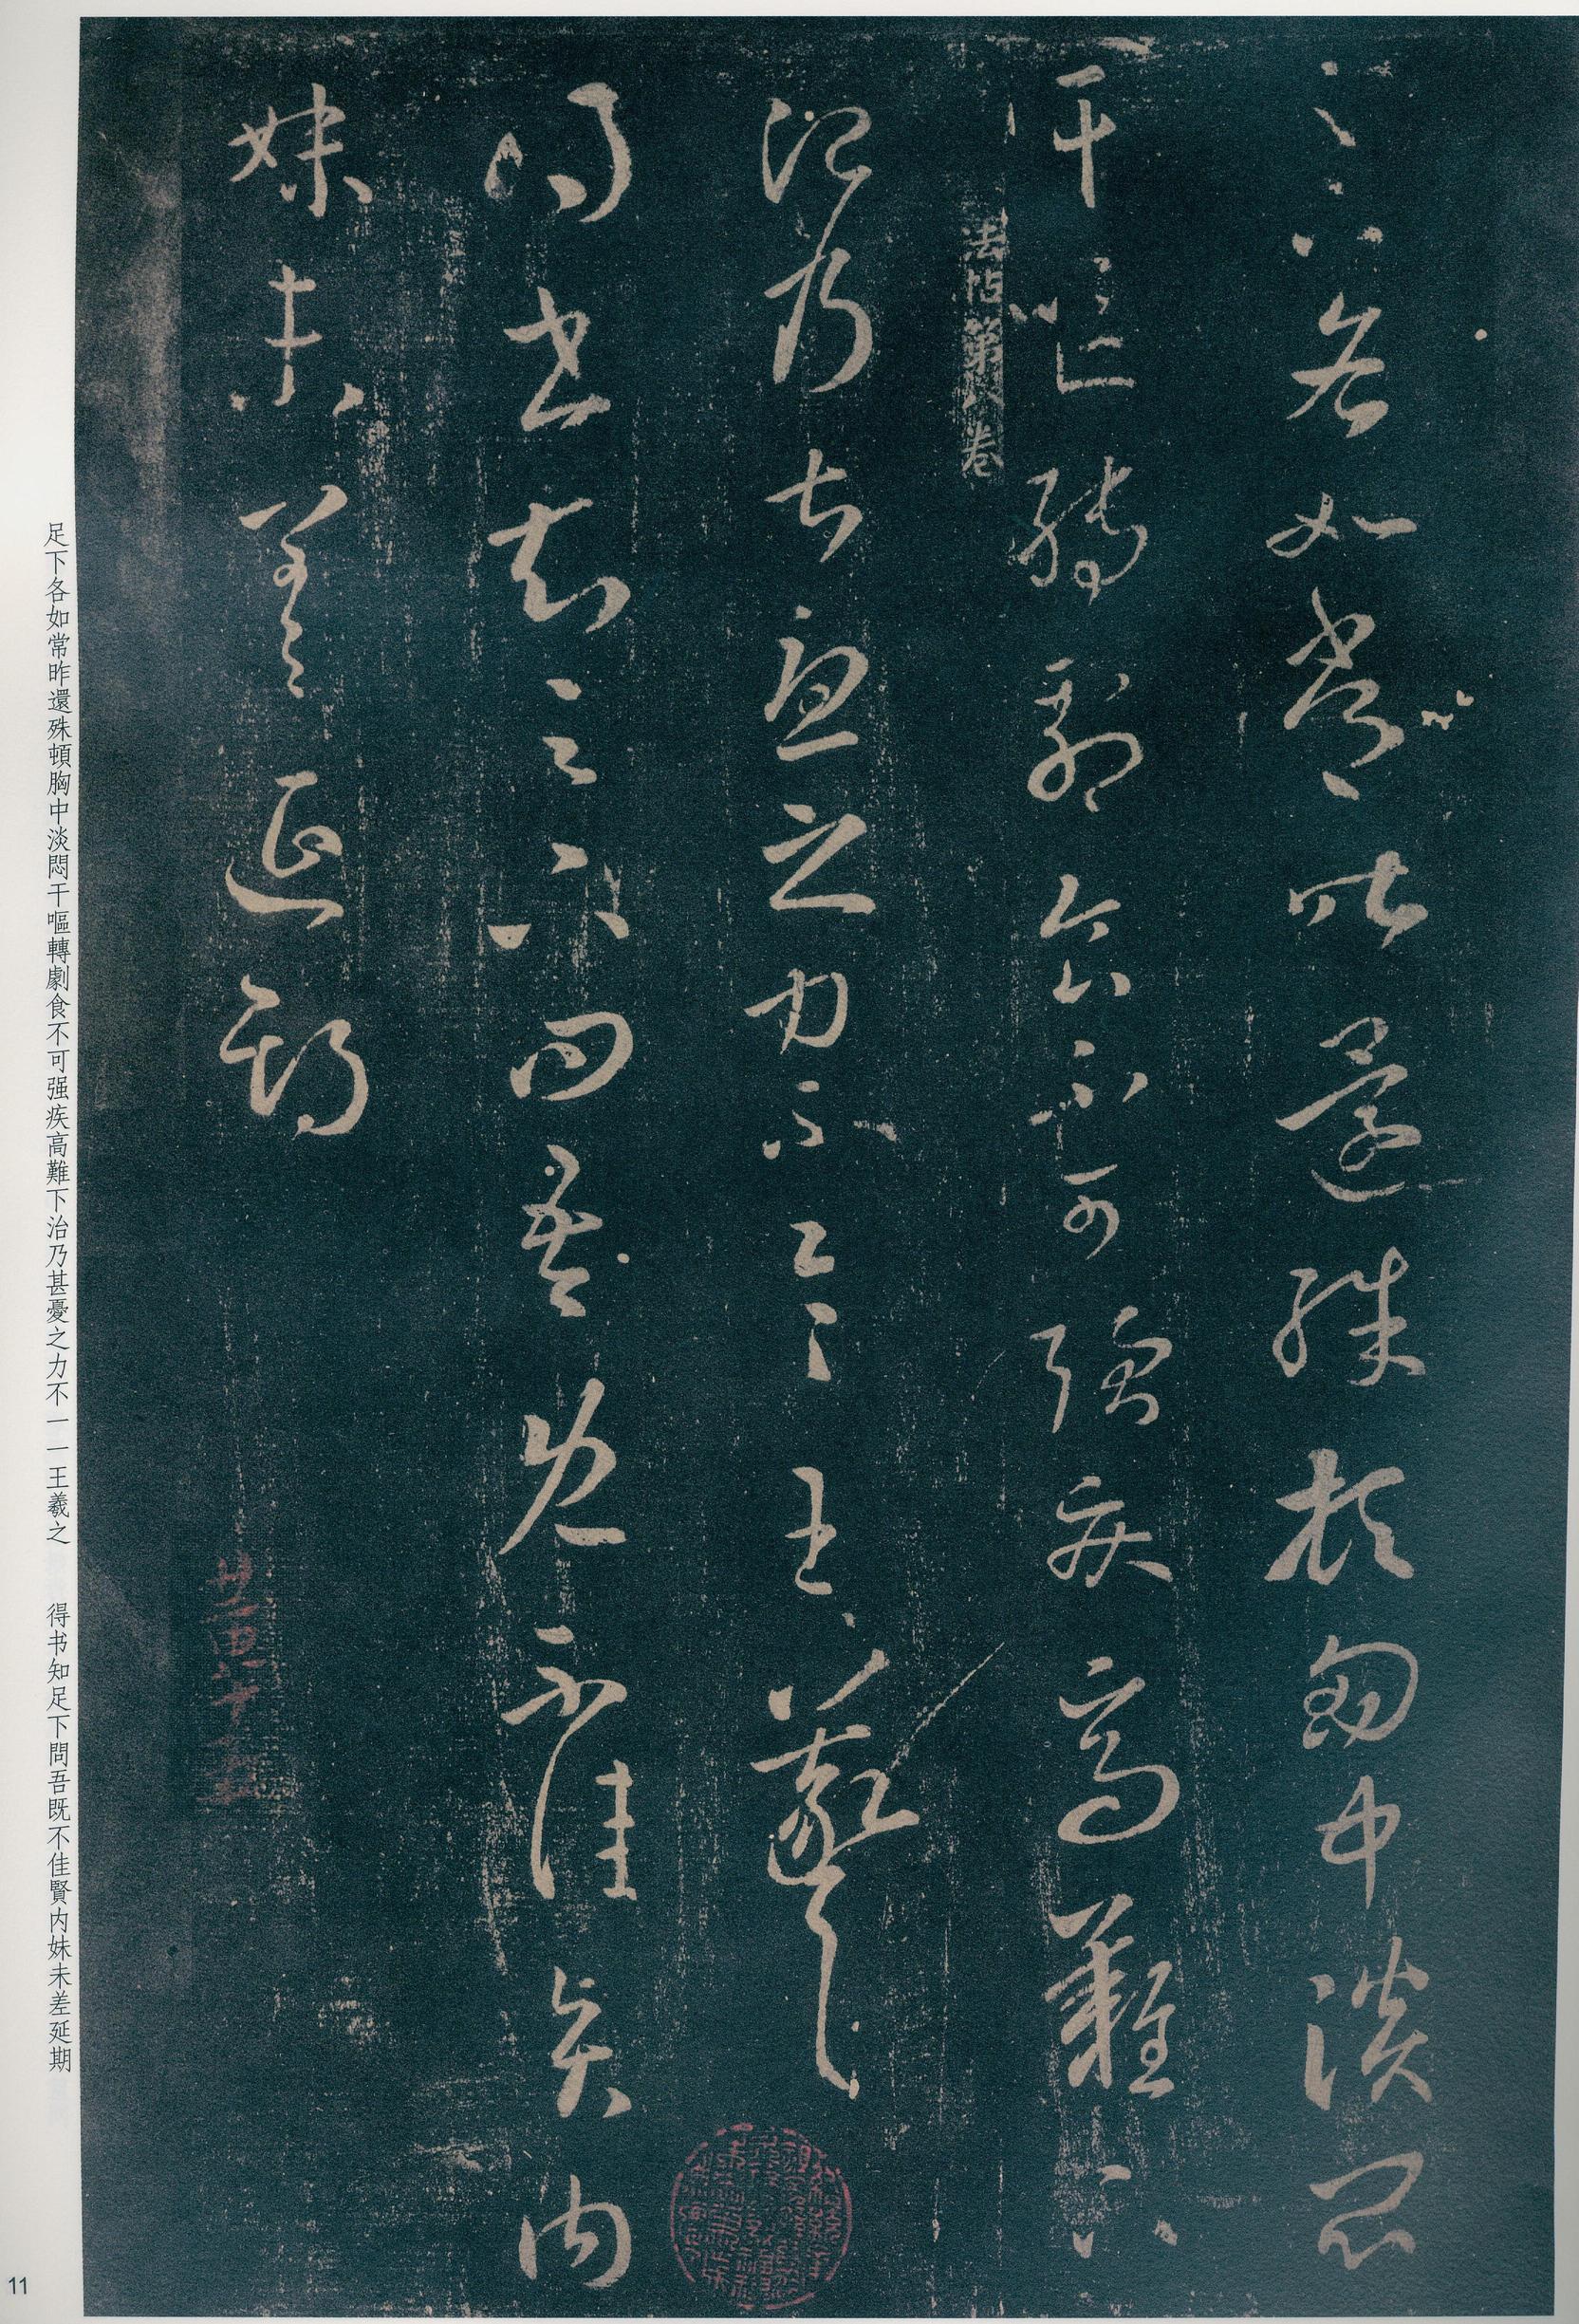 足下各如常昨還殊頓胸中淡悶
干嘔轉劇食不可强疾高難下
治乃甚憂之力不一一王羲之
得书知足下問吾既不佳賢内
妹未差延期
法帖第八卷
足下各如常昨還殊頓胸中淡悶干嘔轉劇食不可强疾高難下治乃甚憂之力不一一王羲之 得书知足下問吾既不佳賢内妹未差延期
11